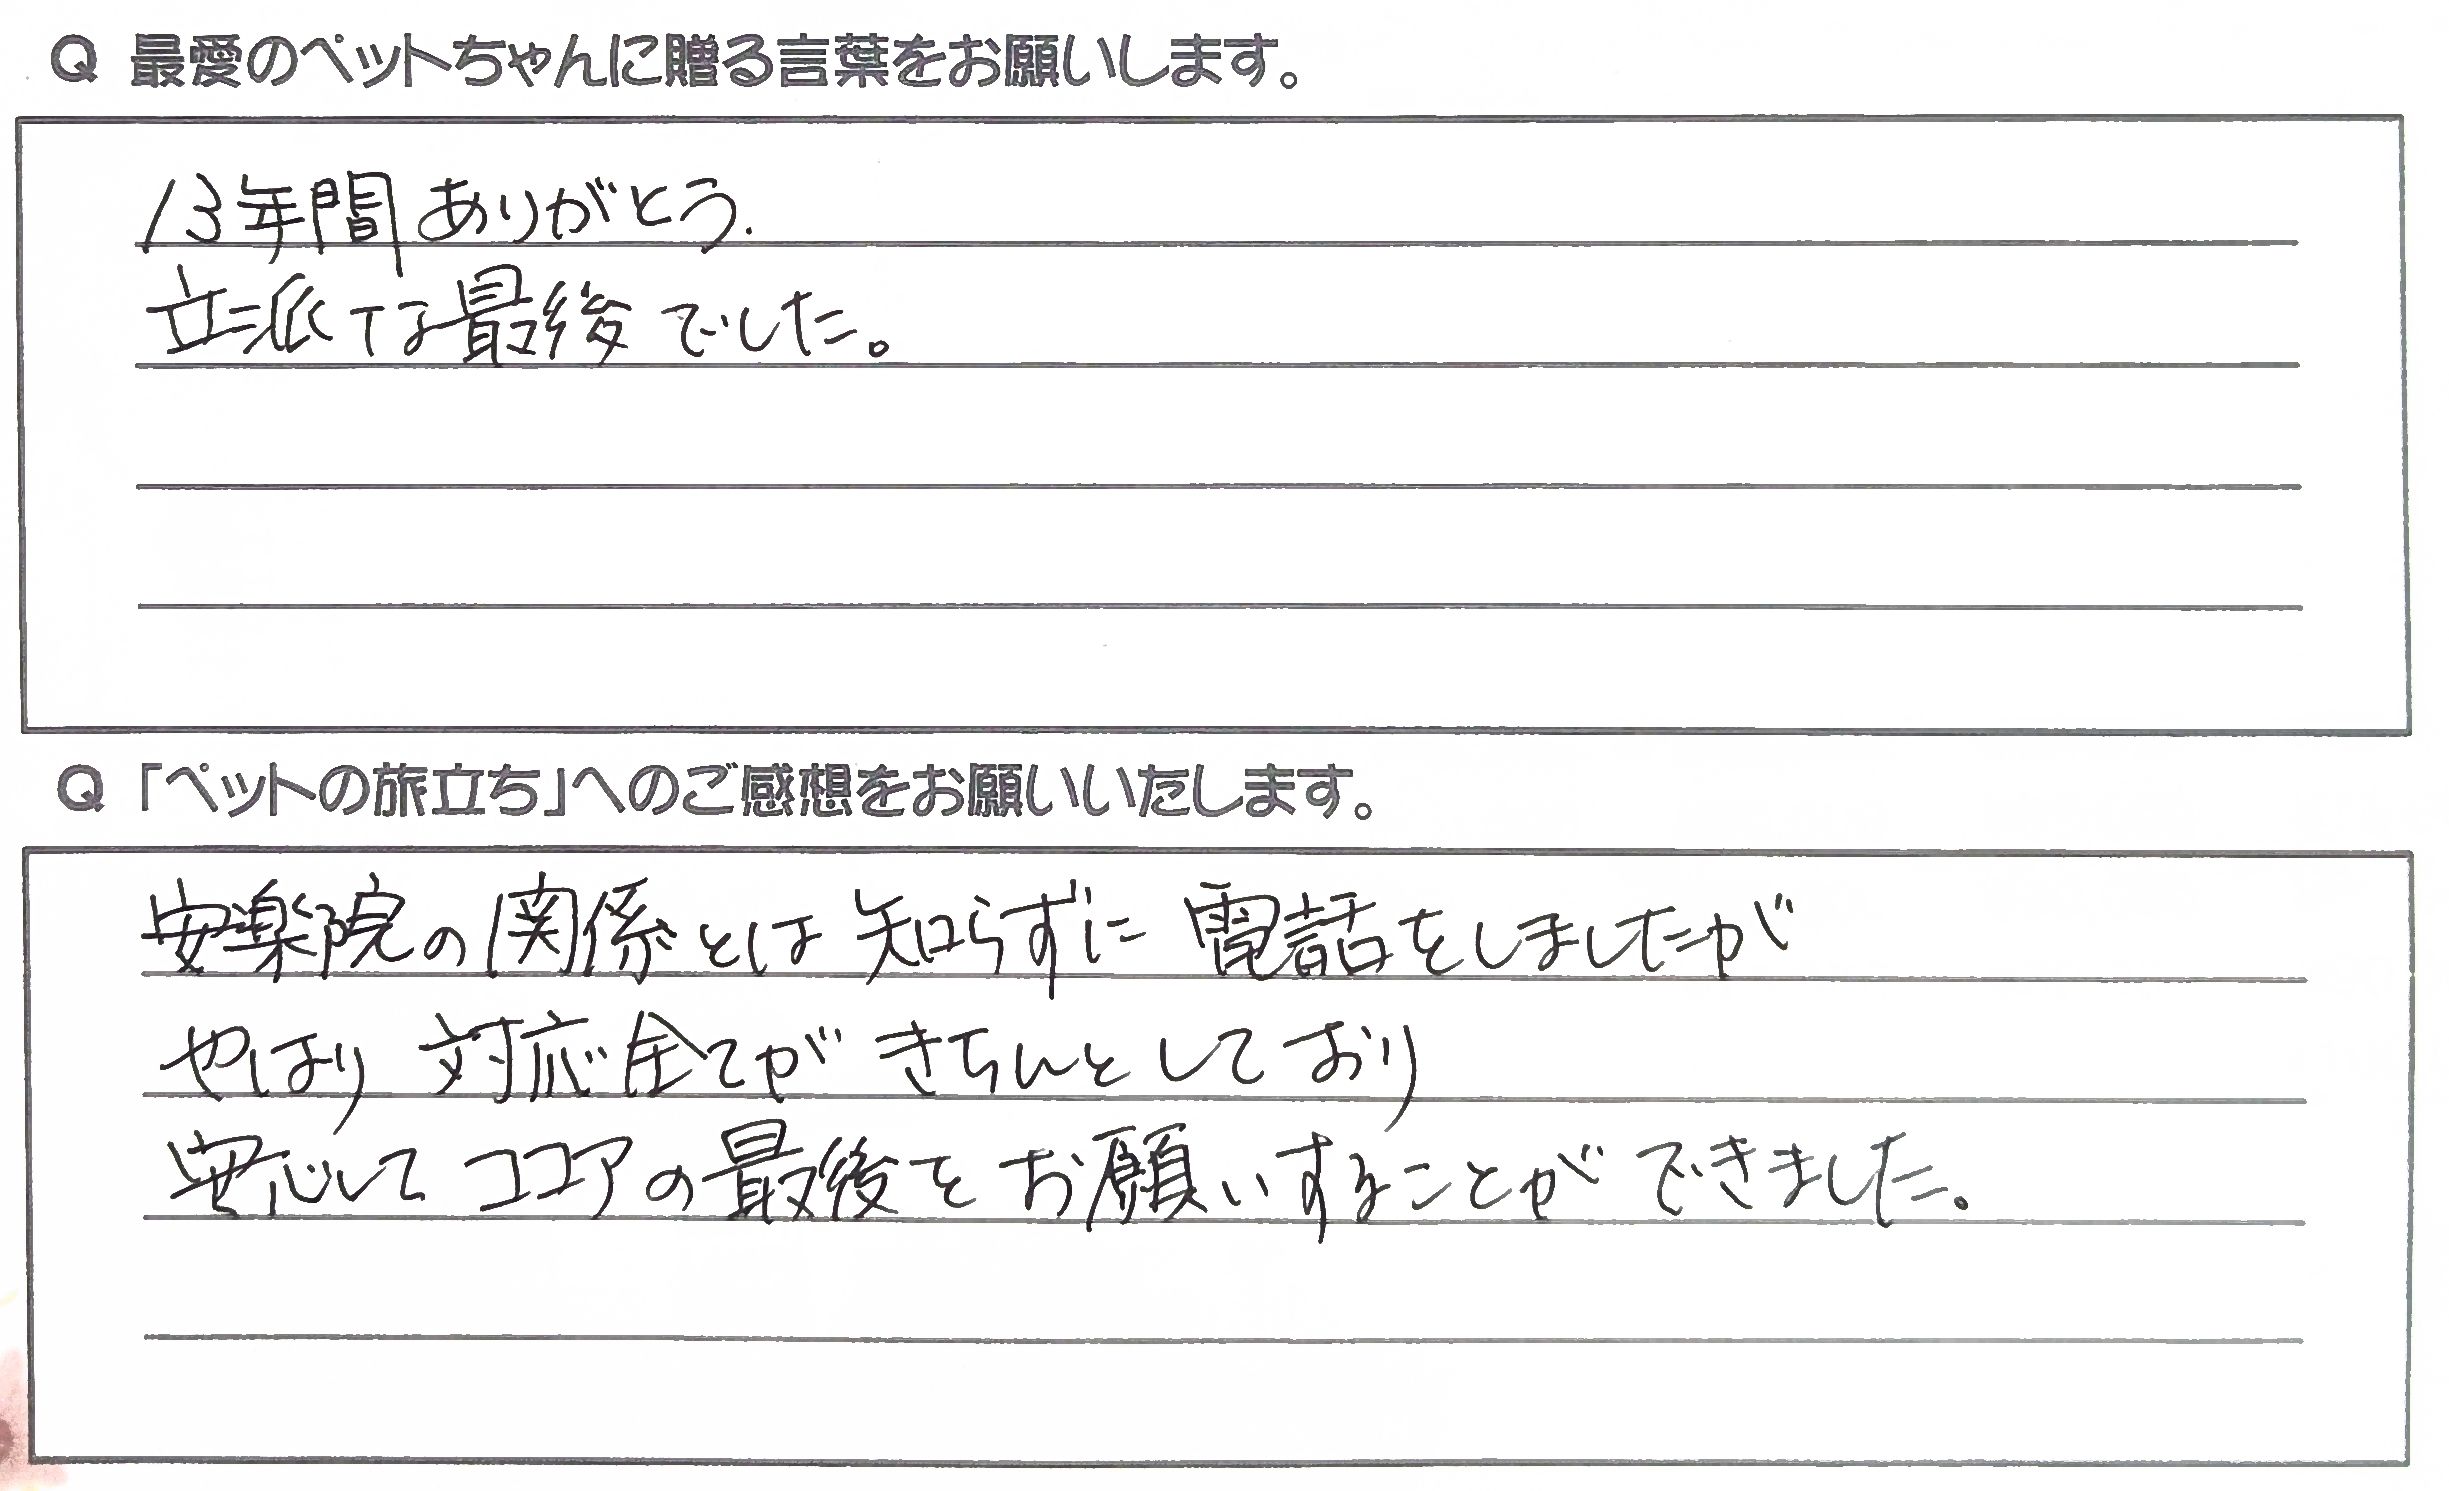 Q 最愛のペットちゃんに贈る言葉をお願いします。
13年間ありがとう.
立派な最後でした。
Q 「ペットの旅立ち」へのご感想をお願いいたします。
安楽院の関係とは知らずに電話をしましたが
やはり対応全てがきちんとしており
安心してココアの最後をお願いすることができました。